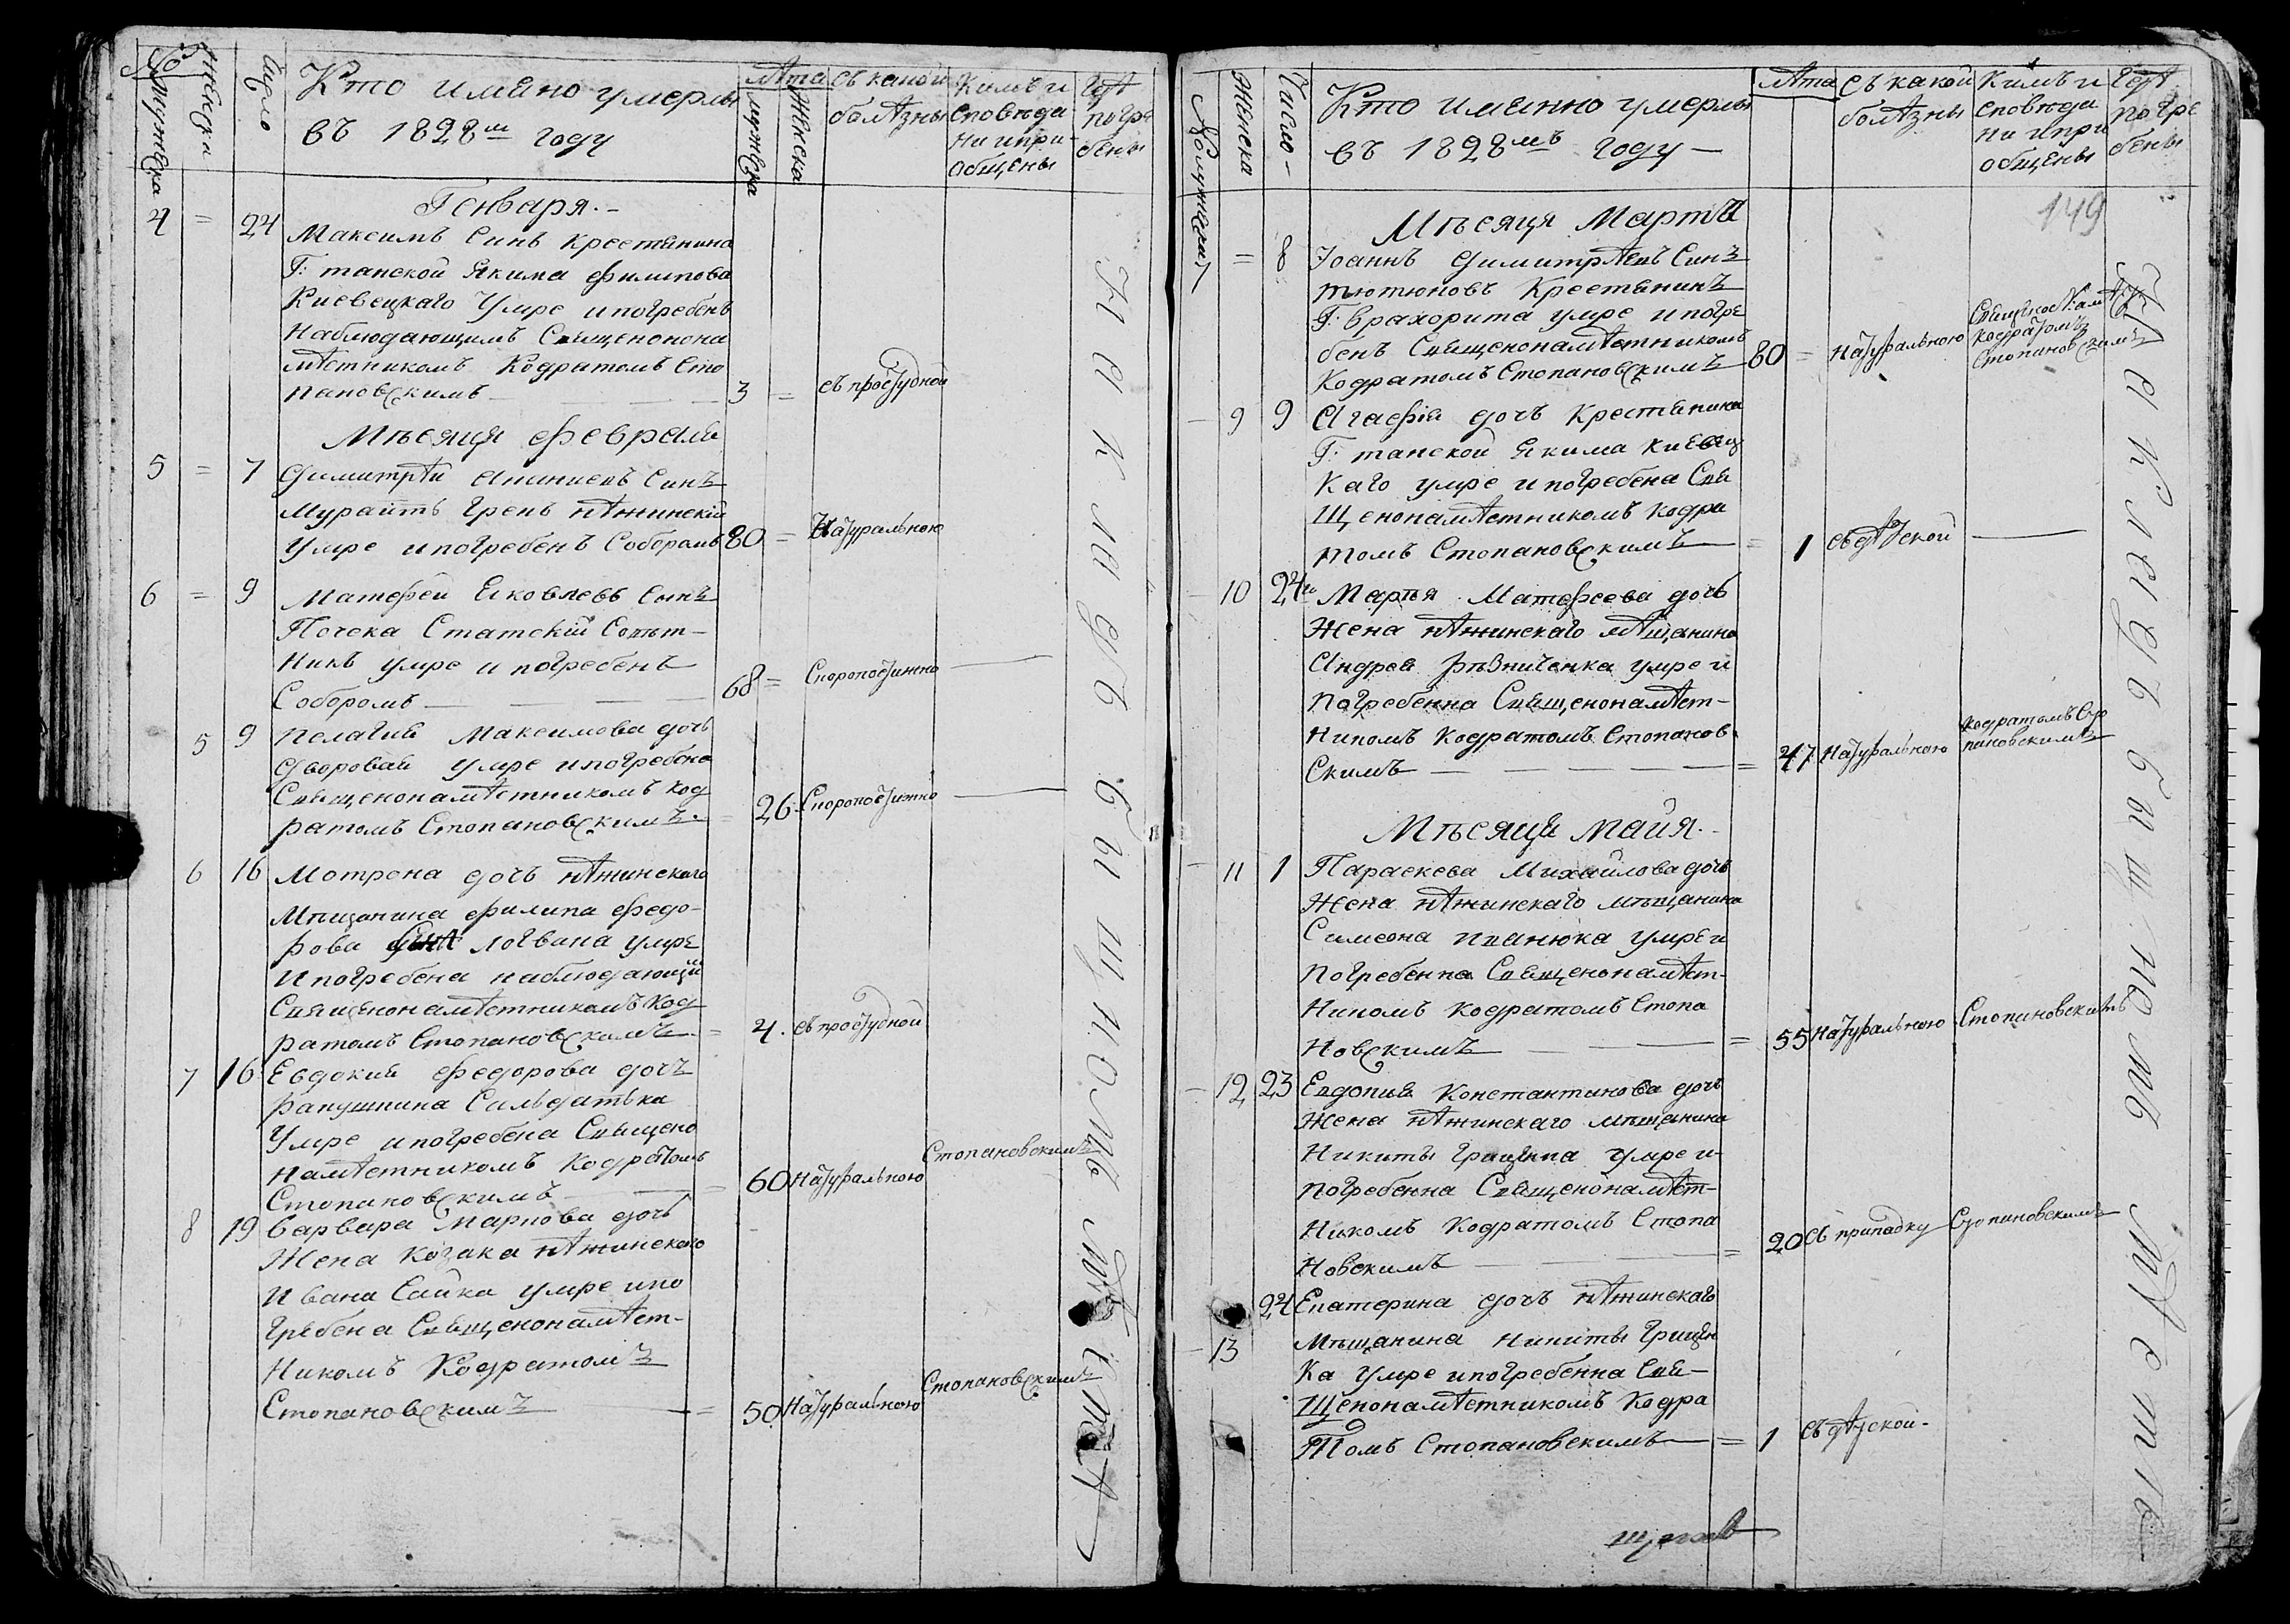 № Мужеска
Женска
Число
Кто имяно умерлы
въ 1828м году
лѣта
мужеска
Женска
съ какой
болѣзны
Кимъ и
сповѣда
ни и при-
общены
Гдѣ
погре
бены
Генваря.-
4 = 24 Максимъ Синъ Крестянина
Г: танской Якима Филипова
Киевецкаго Умре и погребенъ
Наблюдающимъ Священонона
мѣстникомъ Кодратомъ Сто
пановскимъ 3 = съ простудной
Мѣсяця февраля
5 = 7 Димитрѣи Ананиевъ Синъ
Мурайтъ Грекъ нѣжинскій
Умре и погребенъ Соборомъ 80 = Натуральною
6 = 9 Матфей Яковлевъ Сынъ
Почека Статскій Совѣт-
никъ умре и погребенъ
Соборомъ 68 = Скоропостижно
5 9 Пелагия Максимова дочъ
Дворовая умре и погребена
Священонамѣстникомъ Код
ратомъ Стопановскимъ. 26 Скоропостижно
6 16 Мотрона дочъ нѣжинскаго
Мѣщанина филипа федо-
рова Логвина умре
И погребена наблюдающій
Священонамѣстникомъ Код
ратомъ Стопановскимъ = 4. съ простудной
7 16 Евдокия федорова дочъ
Рапушкина Сальдатька
Умре и погребена Священо
намѣстникомъ Кодратомъ
Стопановскимъ = 60 Натуральною Стопановскимъ
8 19 Варвара Маркова дочъ
Жена Козака нѣжинскаго
Ивана Сайка умре и по
гребена Священонамѣст-
Никомъ Кодратомъ
Стопановскимъ = 50 Натуральною Стопановскимъ
На кладбыщномъ мѣстѣ
№ Мужеска
Женска
Число-
Кто имянно умерлы
въ 1828мъ году-
лѣта
съ какой
болѣзны
Кимъ и
сповѣда
ни и при
общены
Гдѣ
погре
бены
149
Мѣсяця Марта
7 = 8 Іоаннъ Димитрѣевъ Синъ
Тютюновъ Крестянинъ
Г: Врахорита умре и погре
бенъ Священонамѣстникомъ
Кодратомъ Стопановскимъ 80 = Натуральною
Кодратомъ
Стопановскимъ
9 9 Агафія дочъ Крестянина
Г: танской Якима Киевец
Каго умре и погребена Свя
Щенонамѣстникомъ Кодра
томъ Стопановскимъ = 1 съ дѣтской
10 24го Марья Матфеева дочъ
Жена нѣжинскаго мѣщанина
Андрея Рѣзниченка умре и
Погребенна Священонамѣст-
Никомъ Кодратомъ Стопанов
Скимъ = 47 Натуральною Кодратомъ Сто
пановскимъ
Мѣсяця майя.-
11 1 Параскева Михайлова дочъ
Жена нѣжинскаго мѣщанина
Симеона Иванюка умре и
Погребенна Священонамѣст-
Никомъ Кодратомъ Стопа
Новскимъ = 55 Натуральною Стопановскимъ
12 23 Евдокия Константинова дочъ
Жена нѣжинскаго мѣщанина
Никиты Грицека умре и
Погребенна Священонамѣст-
Никомъ Кодратомъ Стопа
Новскимъ = 20 съ припадку Стопановскимъ
24 Екатерина дочъ нѣжинскаго
13 Мѣщанина Никиты Грицен
Ка умре и погребенна Свя-
Щенонамѣстникомъ Кодра
Томъ Стопановскимъ = 1 съ дѣтской-
На кладбыщномъ мѣстѣ